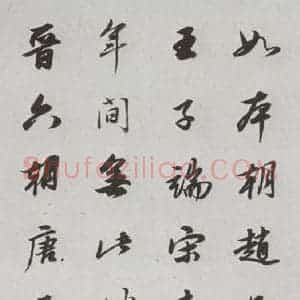 如本朝趙
王子端宋
年间無此
晉六朝唐
shufaziliao.com